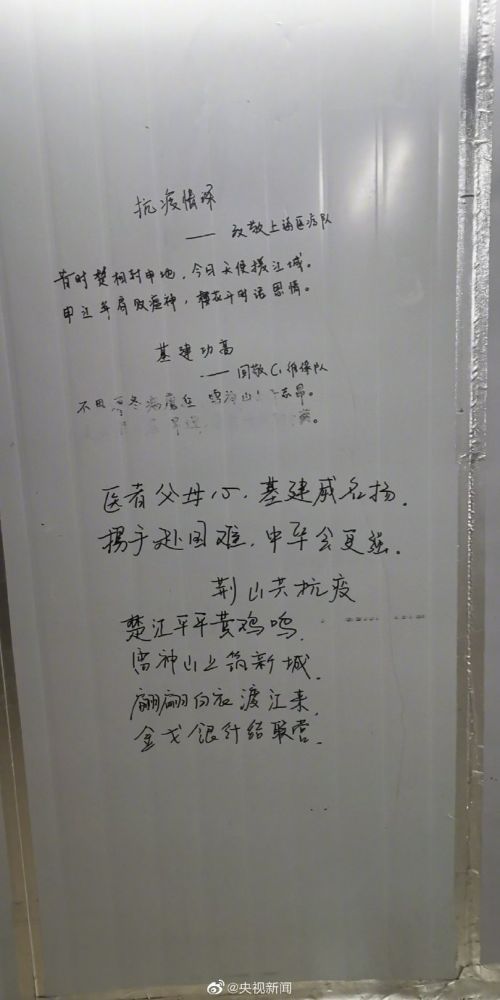 抗疫情深
—— 致敬上海医疗队
昔时楚相封申地，今日天使援江城。
甲辽年肩败瘟神，携衣干时话恩情。
基建功高
—— 回敬C1维保队
不思寒冬病魔狂 雷神山上志昂。
医者父母心，基建威名扬.
携手赴国难，中华会更强.
荆山共抗疫
楚江平平黄鸡鸣，
雷神山上筑新城.
翩翩白衣渡江来，
金戈银针结联营.
@央视新闻